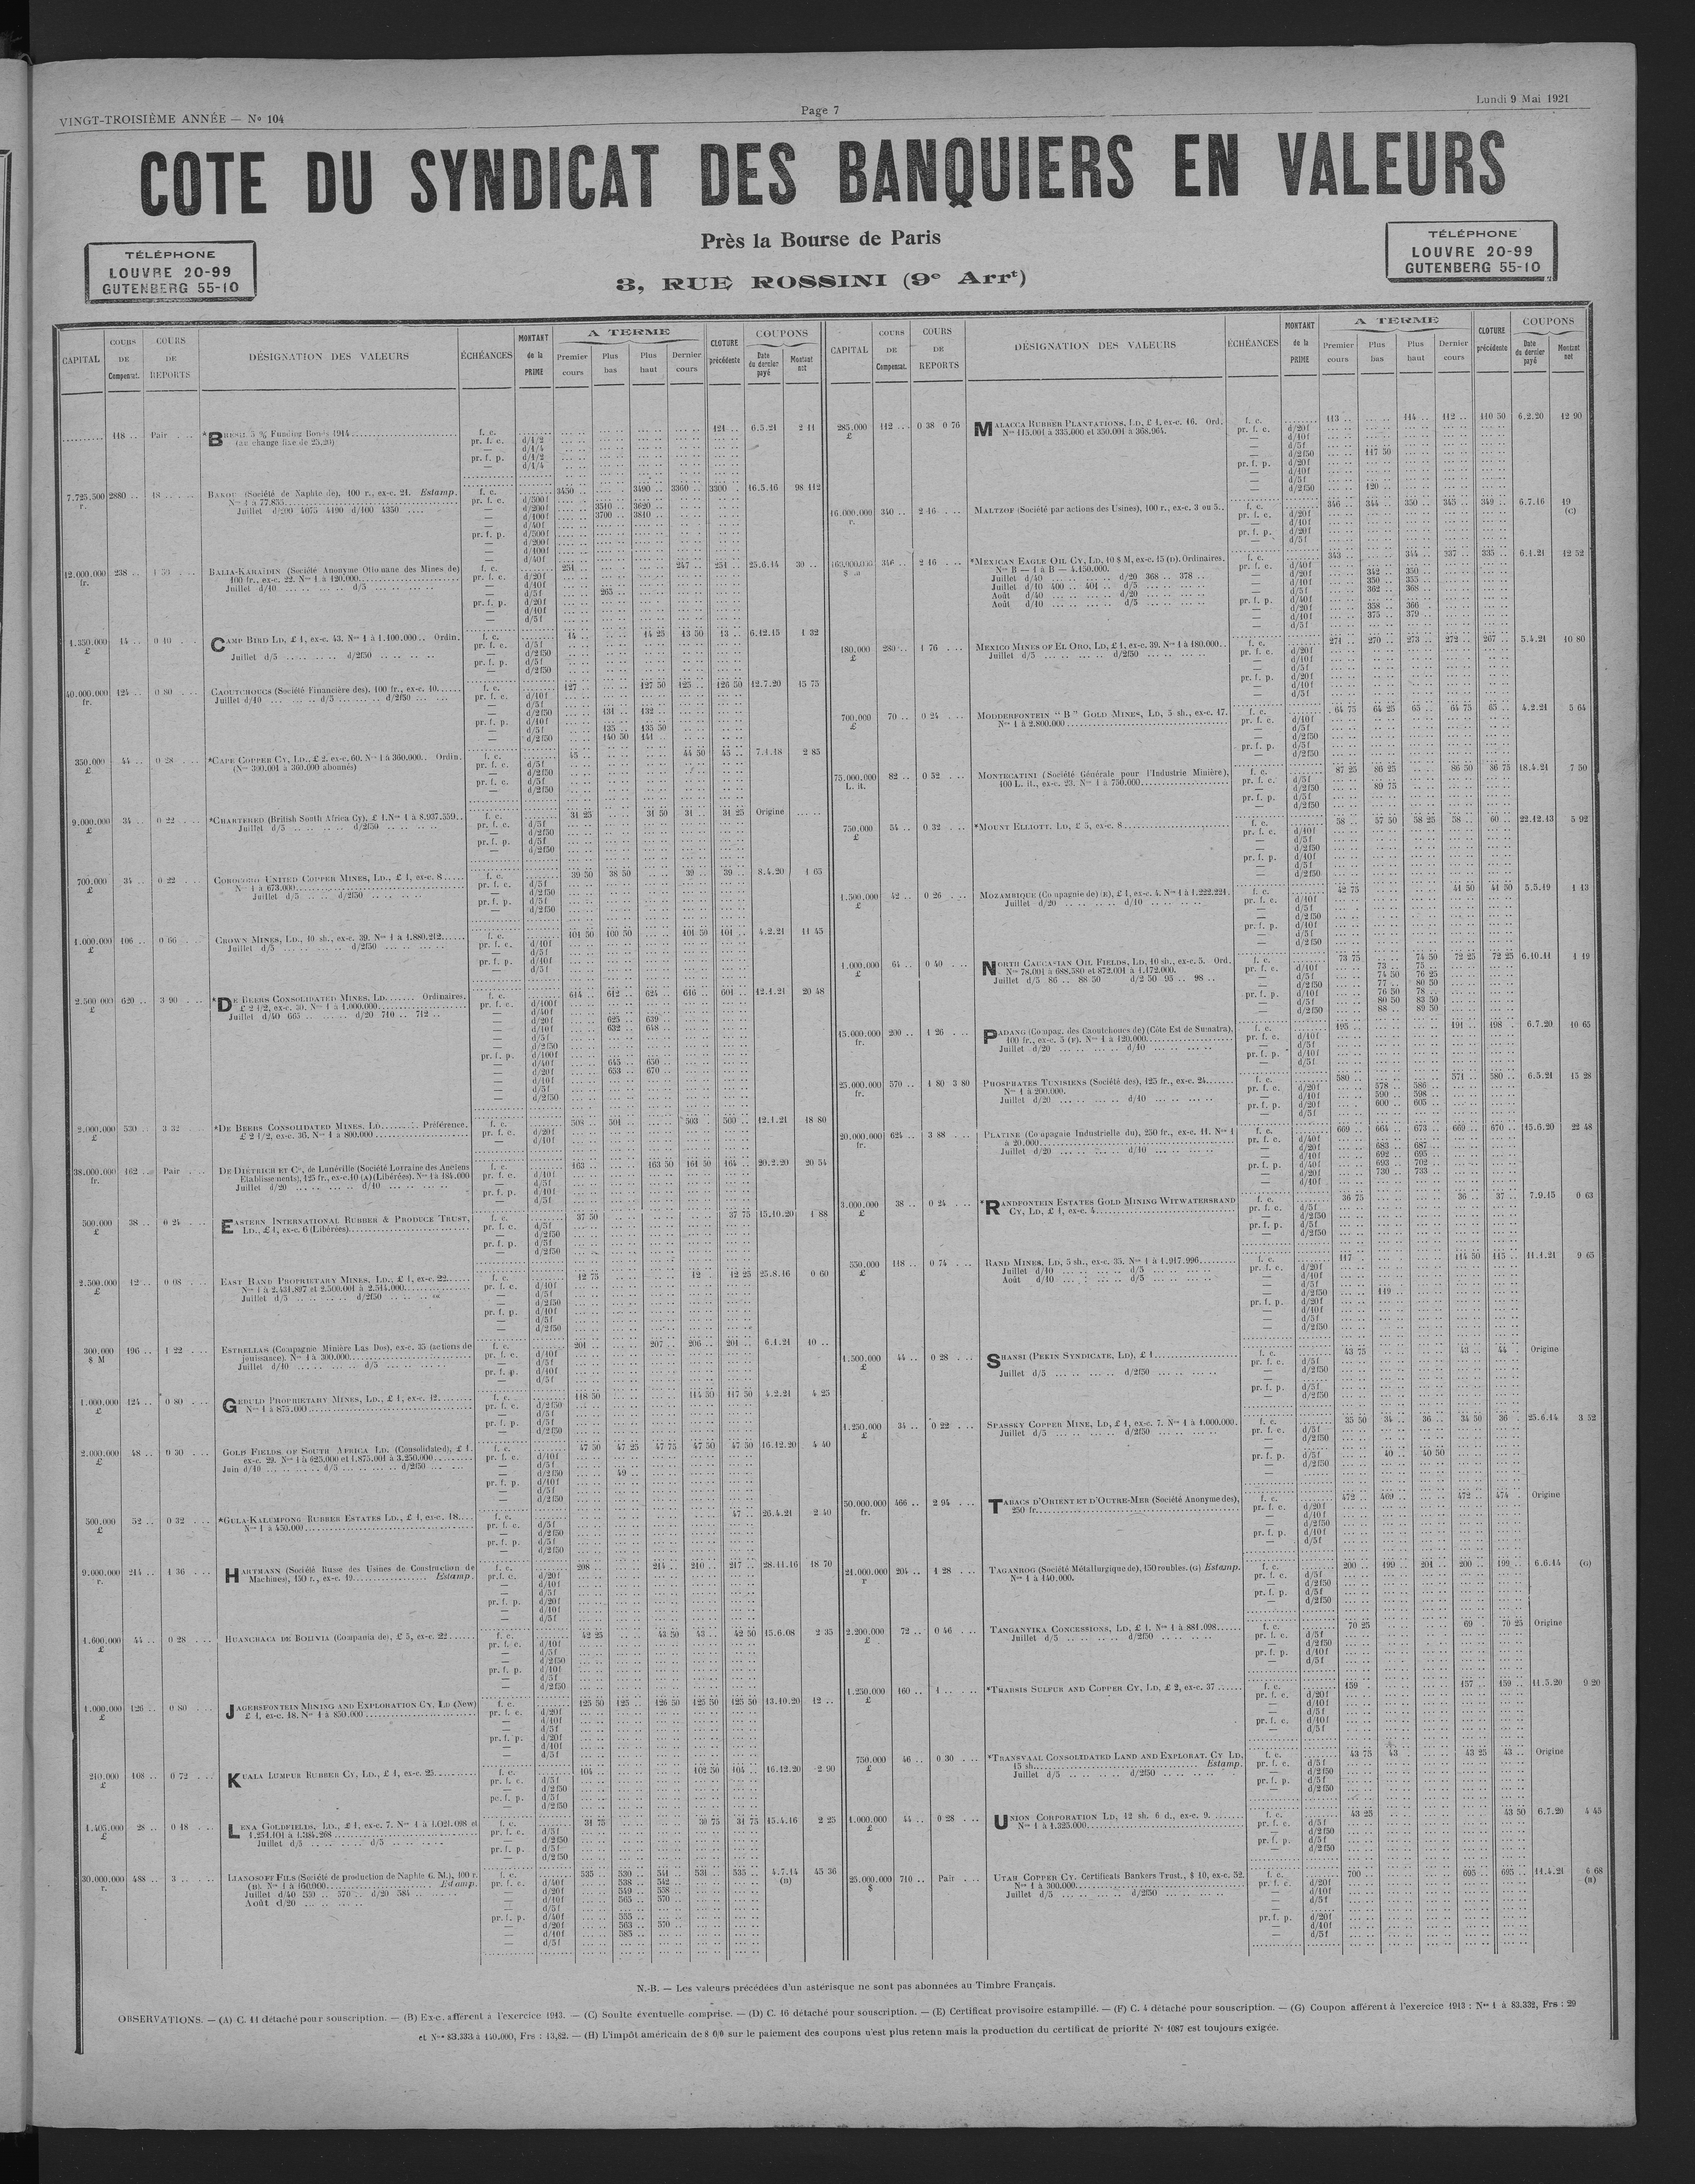 VINGT-TROISIÈME ANNÉE — No 104
Page 7
Lundi 9 Mai 1921
COTE DU SYNDICAT DES BANQUIERS EN VALEURS
Près la Bourse de Paris
3, RUE ROSSINI (9e Arrt)
TÉLÉPHONE
LOUVRE 20-99
GUTENBERG 55-10
TÉLÉPHONE
LOUVRE 20-99
GUTENBERG 55-10
CAPITAL
COURS DE Compensat.
COURS DE REPORTS
DÉSIGNATION DES VALEURS
ÉCHÉANCES
MONTANT de la PRIME
A TERME
Premier cours
Plus bas
Plus haut
Dernier cours
CLOTURE précédente
COUPONS
Date du dernier payé
Montant net
118 .. Pair *BRÉSIL 5 % Funding Bonds 1914 f. c. 121 .. 6.5.21 2 11
(au change fixe de 25,20)
7.725.500 r. 2880 .. 18 .. BAKOU (Société de Naphte de), 100 r., ex-c. 21. Estamp. f. c. 3450 .. 3490 .. 3360 .. 3300 .. 16.5.16 98 112
Nos 1 à 77.855
Juillet d/200 4075 4190 d/100 4350
d/200f 3510 .. 3620 ..
d/100f 3700 3810 ..
12.000.000 fr. 238 .. 1 50 BALIA-KARAÏDIN (Société Anonyme Ottomane des Mines de) f. c. 251 .. 247 .. 251 .. 25.6.14 30 ..
100 fr., ex-c. 22. Nos 1 à 120.000
Juillet d/10 d/5
d/5f 265 ..
1.350.000 £ 14 .. 0 10 CAMP BIRD LD, £ 1, ex-c. 43. Nos 1 à 1.100.000.. Ordin. f. c. 14 .. 14 25 13 50 13 .. 6.12.15 1 32
Juillet d/5 d/2f50
40.000.000 fr. 124 .. 0 80 CAOUTCHOUCS (Société Financière des), 100 fr., ex-c. 10 f. c. 127 .. 127 50 125 .. 126 50 12.7.20 15 75
Juillet d/10 d/5 d/2f50
d/2f50 131 .. 132 ..
d/5f 135 .. 135 50
d/2f50 140 50 141 ..
350.000 £ 44 .. 0 28 *CAPE COPPER CY, LD., £ 2, ex-c. 60. Nos 1 à 360.000.. Ordin. f. c. 45 .. 44 50 45 .. 7.1.18 2 85
(Nos 300.001 à 360.000 abonnés)
9.000.000 £ 34 .. 0 22 *CHARTERED (British South Africa Cy), £ 1. Nos 1 à 8.937.559.. f. c. 31 25 31 50 31 .. 31 25 Origine
Juillet d/5 d/2f50
700.000 £ 34 .. 0 22 COROCORO UNITED COPPER MINES, LD., £ 1, ex-c. 8 f. c. 39 50 38 50 39 .. 39 .. 8.4.20 1 65
Nos 1 à 673.000
Juillet d/5 d/2f50
1.000.000 £ 106 .. 0 66 CROWN MINES, LD., 10 sh., ex-c. 39. Nos 1 à 1.880.212 f. c. 101 50 100 50 101 50 101 .. 4.2.21 11 45
Juillet d/5 d/2f50
2.500.000 £ 620 .. 3 90 *DE BEERS CONSOLIDATED MINES, LD. Ordinaires. f. c. 614 .. 612 .. 624 .. 616 .. 601 .. 12.1.21 20 48
£ 2 1/2, ex-c. 30. Nos 1 à 1.000.000
Juillet d/40 665 d/20 710 .. 712 ..
d/20f 625 .. 639
d/10f 632 .. 648 ..
d/40f 645 .. 650 ..
d/20f 653 .. 670 ..
2.000.000 £ 530 .. 3 32 *DE BEERS CONSOLIDATED MINES, LD. Préférence. f. c. 508 .. 501 .. 503 .. 500 .. 12.1.21 48 80
£ 2 1/2, ex-c. 36. Nos 1 à 800.000
38.000.000 fr. 162 .. Pair DE DIÉTRICH ET Cie, de Lunéville (Société Lorraine des Anciens f. c. 163 .. 163 50 161 50 164 .. 20.2.20 20 54
Etablissements), 125 fr., ex-c. 10 (A) (Libérées). Nos 1 à 184.000
Juillet d/20 d/10
500.000 £ 38 .. 0 24 EASTERN INTERNATIONAL RUBBER & PRODUCE TRUST, f. c. 37 50 37 75 15.10.20 1 88
LD., £ 1, ex-c. 6 (Libérées)
2.500.000 £ 12 .. 0 08 EAST RAND PROPRIETARY MINES, LD., £ 1, ex-c. 22 f. c. 12 75 12 12 25 25.8.16 0 60
Nos 1 à 2.431.897 et 2.500.001 à 2.514.000
Juillet d/5 d/2f50
300.000 $ M 196 .. 1 22 ESTRELLAS (Compagnie Minière Las Dos), ex-c. 35 (actions de f. c. 201 .. 207 .. 206 .. 201 .. 6.1.21 10 ..
jouissance). Nos 1 à 300.000
Juillet d/10 d/5
1.000.000 £ 124 .. 0 80 GEDULD PROPRIETARY MINES, LD., £ 1, ex-c. 12 f. c. 118 50 114 50 117 50 4.2.21 4 25
Nos 1 à 875.000
2.000.000 £ 48 .. 0 30 GOLD FIELDS OF SOUTH AFRICA LD. (Consolidated), £ 1. f. c. 47 50 47 25 47 75 47 50 47 50 16.12.20 4 40
ex-c. 29. Nos 1 à 625.000 et 1.875.001 à 3.250.000
Juin d/10 d/5 d/2f50
d/2f50 49 ..
500.000 £ 52 .. 0 32 *GULA-KALUMPONG RUBBER ESTATES LD., £ 1, ex-c. 18 f. c. 47 .. 26.4.21 2 40
Nos 1 à 450.000
9.000.000 r. 214 .. 1 36 HARTMANN (Société Russe des Usines de Construction de f. c. 208 214 .. 210 .. 217 .. 28.11.16 18 70
Machines), 150 r., ex-c. 19 Estamp.
1.600.000 £ 44 .. 0 28 HUANCHACA DE BOLIVIA (Compania de), £ 5, ex-c. 22 f. c. 42 25 43 50 43 .. 42 50 15.6.08 2 35
1.000.000 £ 126 .. 0 80 JAGERSFONTEIN MINING AND EXPLORATION CY, LD (New) f. c. 125 50 125 .. 126 50 125 50 125 50 13.10.20 12 ..
£ 1, ex-c. 18. Nos 1 à 850.000
210.000 £ 108 .. 0 72 KUALA LUMPUR RUBBER CY, LD., £ 1, ex-c. 25 f. c. 104 .. 102 50 104 .. 16.12.20 2 90
1.405.000 £ 28 .. 0 18 LENA GOLDFIELDS, LD., £ 1, ex-c. 7. Nos 1 à 1.021.098 et f. c. 31 75 30 75 31 75 15.4.16 2 25
1.251.101 à 1.384.268
Juillet d/5 d/5
30.000.000 r. 488 .. 3 .. LIANOSOFF FILS (Société de production de Naphte G. M.), 100 r. f. c. 535 .. 530 .. 541 .. 531 .. 535 .. 4.7.14 (B) 45 36
(B). Nos 1 à 160.000 Estamp.
Juillet d/40 550 .. 570 .. d/20 584
Août d/20
d/40f 538 .. 542 ..
d/20f 549 .. 558 ..
d/10f 565 .. 570 ..
d/40f 555 ..
d/20f 563 .. 570 ..
d/10f 585 ..
CAPITAL
COURS DE Compensat.
COURS DE REPORTS
DÉSIGNATION DES VALEURS
ÉCHÉANCES
MONTANT de la PRIME
A TERME
Premier cours
Plus bas
Plus haut
Dernier cours
CLOTURE précédente
COUPONS
Date du dernier payé
Montant net
285.000 £ 112 .. 0 38 0 76 MALACCA RUBBER PLANTATIONS, LD, £ 1, ex-c. 16. Ord. f. c. 113 .. 114 .. 112 .. 110 50 6.2.20 12 90
Nos 115.001 à 335.000 et 350.001 à 368.964.
d/2f50 117 50
d/2f50 120 ..
16.000.000 r. 340 .. 2 16 MALTZOF (Société par actions des Usines), 100 r., ex-c. 3 ou 5.. f. c. 346 .. 344 .. 350 .. 345 .. 349 .. 6.7.16 19 (C)
346 .. 2 16 *MEXICAN EAGLE OIL CY, LD, 10 $ M, ex-c. 15 (D). Ordinaires. f. c. 343 .. 344 .. 337 .. 335 .. 6.1.21 12 52
Nos B — 1 à B — 4.150.000.
Juillet d/40 d/20 368 .. 378 ..
Juillet d/10 400 .. 401 .. d/5
Août d/40 d/20
Août d/10 d/5
d/20f 342 .. 350 ..
d/10f 350 .. 355 ..
d/5f 362 .. 368 ..
d/20f 358 .. 366 ..
d/10f 375 .. 379 ..
180.000 £ 280 .. 1 76 MEXICO MINES OF EL ORO, LD, £ 1, ex-c. 39. Nos 1 à 180.000.. f. c. 271 .. 270 .. 273 .. 272 .. 267 .. 5.4.21 10 80
Juillet d/5 d/2f50
700.000 £ 70 .. 0 24 MODDERFONTEIN “ B ” GOLD MINES, LD, 5 sh., ex-c. 17. f. c. 64 75 64 25 65 .. 64 75 65 .. 4.2.21 5 64
Nos 1 à 2.800.000
75.000.000 L. it. 82 .. 0 52 MONTECATINI (Société Générale pour l'Industrie Minière), f. c. 87 25 86 25 86 50 86 75 18.4.21 7 50
100 L. it., ex-c. 23. Nos 1 à 750.000
89 75
750.000 £ 54 .. 0 32 *MOUNT ELLIOTT, LD, £ 5, ex-c. 8 f. c. 58 .. 57 50 58 25 58 .. 60 .. 22.12.13 5 92
1.500.000 £ 42 .. 0 26 MOZAMBIQUE (Compagnie de) (E), £ 1, ex-c. 4. Nos 1 à 1.222.221. f. c. 42 75 41 50 41 50 5.5.19 1 13
Juillet d/20 d/10
1.000.000 £ 64 .. 0 40 NORTH CAUCASIAN OIL FIELDS, LD, 10 sh., ex-c. 5. Ord. f. c. 73 75 74 50 72 25 72 25 6.10.11 1 19
Nos 78.001 à 688.580 et 872.001 à 1.172.000.
Juillet d/5 86 .. 88 50 d/2 50 95 .. 98 ..
d/10f 73 .. 75 ..
d/5f 74 50 76 25
d/2f50 77 .. 80 50
d/10f 76 50 78 ..
d/5f 80 50 83 50
d/2f50 88 .. 89 50
15.000.000 fr. 200 .. 1 26 PADANG (Compag. des Caoutchoucs de) (Côte Est de Sumatra), f. c. 195 .. 191 .. 198 . 6.7.20 10 65
100 fr., ex-c. 5 (F). Nos 1 à 120.000
Juillet d/20 d/10
25.000.000 fr. 570 .. 1 80 3 80 PHOSPHATES TUNISIENS (Société des), 125 fr., ex-c. 24 f. c. 580 .. 571 .. 580 .. 6.5.21 15 28
Nos 1 à 200.000.
Juillet d/20 d/10
d/20f 578 .. 586 ..
d/10f 590 .. 598 ..
d/20f 600 .. 605 ..
20.000.000 fr. 624 .. 3 88 PLATINE (Compagnie Industrielle du), 250 fr., ex-c. 11. Nos 1 f. c. 669 .. 664 .. 673 .. 669 .. 670 .. 15.6.20 22 48
à 20.000
Juillet d/20 d/10
d/20f 683 .. 687 ..
d/10f 692 .. 695 ..
d/40f 693 .. 702 ..
d/20f 730 .. 733 ..
3.000.000 £ 38 .. 0 24 *RANDFONTEIN ESTATES GOLD MINING WITWATERSRAND f. c. 36 75 36 .. 37 .. 7.9.15 0 63
CY, LD, £ 1, ex-c. 4
550.000 £ 118 .. 0 74 RAND MINES, LD, 5 sh., ex-c. 35. Nos 1 à 1.917.996 f. c. 117 .. 114 50 115 .. 11.1.21 9 65
Juillet d/10 d/5
Août d/10 d/5
d/2f50 119 ..
1.500.000 £ 44 .. 0 28 SHANSI (PEKIN SYNDICATE, LD), £ 1 f. c. 43 75 43 .. 44 Origine
Juillet d/5 d/2f50
1.250.000 £ 34 .. 0 22 SPASSKY COPPER MINE, LD, £ 1, ex-c. 7. Nos 1 à 1.000.000. f. c. 35 50 34 .. 36 .. 34 50 36 . 25.6.14 3 52
Juillet d/5 d/2f50
d/5f 40 .. 40 50
50.000.000 fr. 466 .. 2 94 TABACS D'ORIENT ET D'OUTRE-MER (Société Anonyme des), f. c. 472 .. 469 .. 472 .. 474 .. Origine
250 fr.
21.000.000 r 204 .. 1 28 TAGANROG (Société Métallurgique de), 150 roubles. (G) Estamp. f. c. 200 .. 199 .. 201 .. 200 .. 199 .. 6.6.14 (G)
Nos 1 à 140.000.
2.200.000 £ 72 .. 0 46 TANGANYIKA CONCESSIONS, LD, £ 1. Nos 1 à 881.098 f. c. 70 25 69 . 70 25 Origine
Juillet d/5 d/2f50
1.250.000 £ 160 .. 1 .. *THARSIS SULFUR AND COPPER CY, LD, £ 2, ex-c. 37 f. c. 159 .. 157 .. 159 .. 11.5.20 9 20
750.000 £ 46 .. 0 30 *TRANSVAAL CONSOLIDATED LAND AND EXPLORAT. CY LD, f. c. 43 75 43 .. 43 25 43 .. Origine
15 sh. Estamp.
Juillet d/5 d/2f50
1.000.000 £ 44 .. 0 28 UNION CORPORATION LD, 12 sh. 6 d., ex-c. 9. f. c. 43 25 43 50 6.7.20 4 45
Nos 1 à 1.325.000
25.000.000 $ 710 .. Pair UTAH COPPER CY. Certificats Bankers Trust., $ 10, ex-c. 52. f. c. 700 .. 695 .. 695 .. 11.4.21 6 68 (H)
Nos 1 à 300.000
Juillet d/5 d/2f50
N.-B. — Les valeurs précédées d'un astérisque ne sont pas abonnées au Timbre Français.
OBSERVATIONS. — (A) C. 11 détaché pour souscription. — (B) Ex-c. afférent à l'exercice 1913. — (C) Soulte éventuelle comprise. — (D) C. 16 détaché pour souscription. — (E) Certificat provisoire estampillé. — (F) C. 4 détaché pour souscription. — (G) Coupon afférent à l'exercice 1913 : Nos 1 à 83.332, Frs : 29
et Nos 83.333 à 140.000, Frs : 13,82. — (H) L'impôt américain de 8 0/0 sur le paiement des coupons n'est plus retenu mais la production du certificat de priorité No 1087 est toujours exigée.